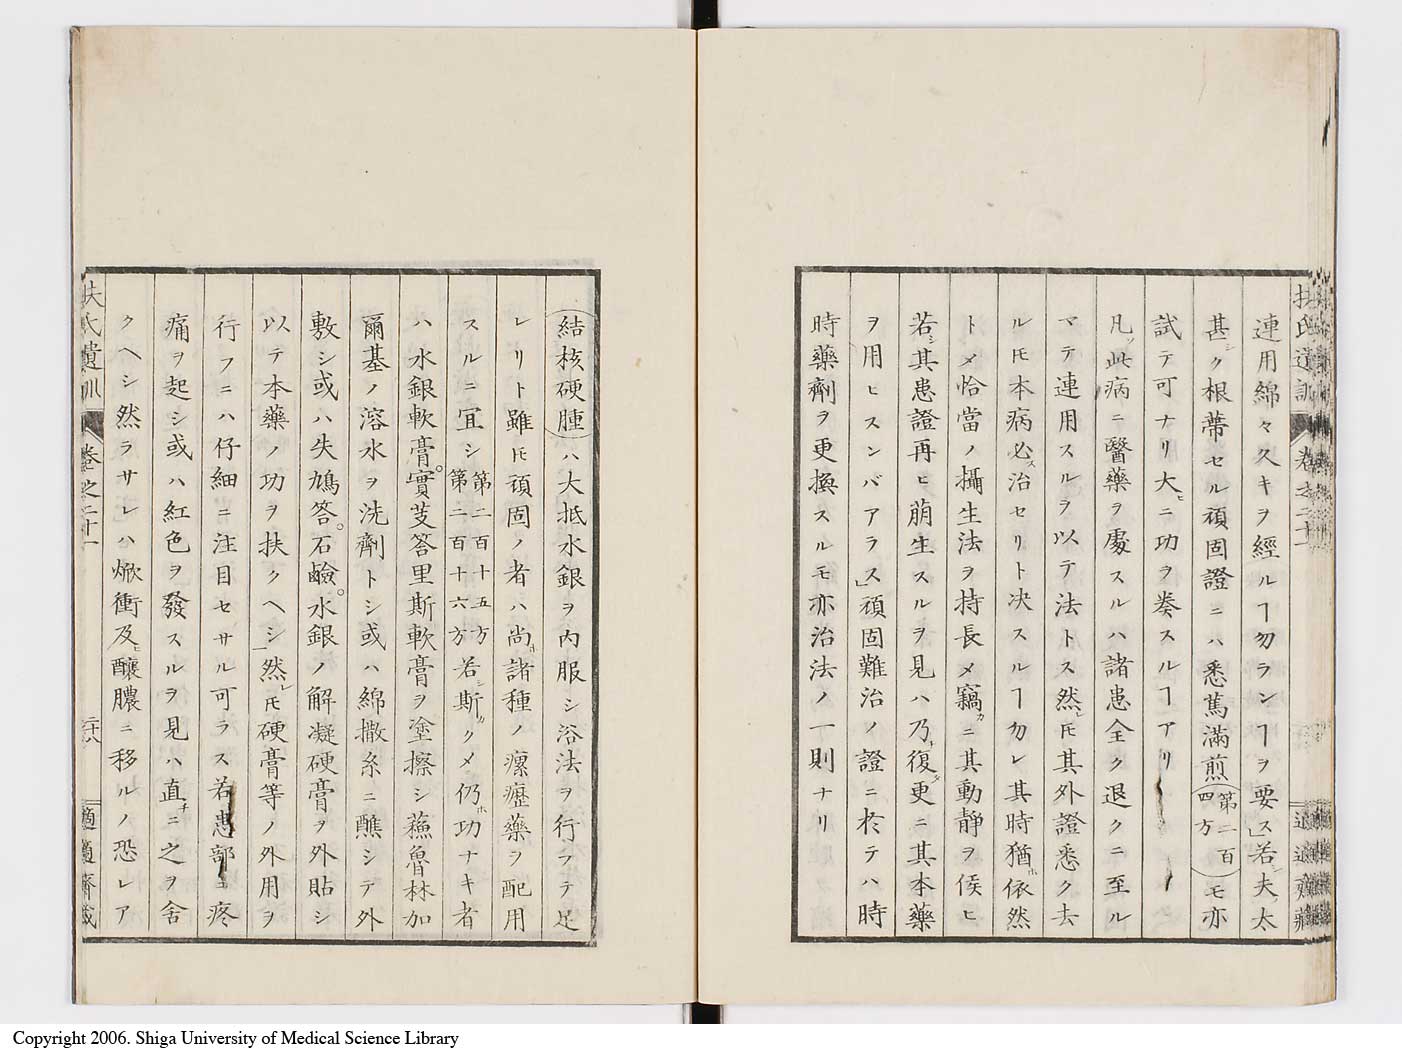 連用綿々久キヲ經ルヿ勿ランヿヲ要ス」若シ夫レ太
甚シク根蔕セル頑固證ニハ悉篤滿煎第二百四方モ亦
試テ可ナリ大ヒニ功ヲ奏スルヿアリ
凡ソ此病ニ醫藥ヲ處スルハ諸患全ク退クニ至ル
マテ連用スルヲ以テ法トス然レ𪜈其外證悉ク去
ル𪜈本病必ス治セリト决スルヿ勿レ其時猶ホ依然
トメ恰當ノ攝生法ヲ持長メ竊カニ其動靜ヲ候ヒ
若シ其患證再ヒ萠生スルヲ見ハ乃チ復タ更ニ其本藥
ヲ用ヒスンバアラス」頑固難治ノ證ニ於テハ時
時藥劑ヲ更換スルモ亦治法ノ一則ナリ
扶氏遺訓 卷之二十一
適適齋藏
結核硬腫ハ大抵水銀ヲ內服シ浴法ヲ行フテ足
レリト雖𪜈頑固ノ者ハ尚ホ諸種ノ瘰癧藥ヲ配用
スルニ冝シ第二百十五方第二百十六方若シ斯ノクメ仍ホ功ナキ者
ハ水銀軟膏。實芰答里斯軟膏ヲ塗擦シ蘓魯林加
爾基ノ溶水ヲ洗劑トシ或ハ綿撒糸ニ醮シテ外
敷シ或ハ失鳩答。石鹼。水銀ノ解凝硬膏ヲ外貼シ
以テ本藥ノ功ヲ扶クヘシ」然レ𪜈硬膏等ノ外用ヲ
行フニハ仔細ニ注目セサル可ラス若患部ニ疼
痛ヲ起シ或ハ紅色ヲ發スルヲ見ハ直チニ之ヲ舍
クヘシ然ラサレハ焮衝及ヒ釀膿ニ移ルノ恐レア
扶氏遺訓 卷之二十一 二十八 適適齋藏
Copyright 2006. Shiga University of Medical Science Library